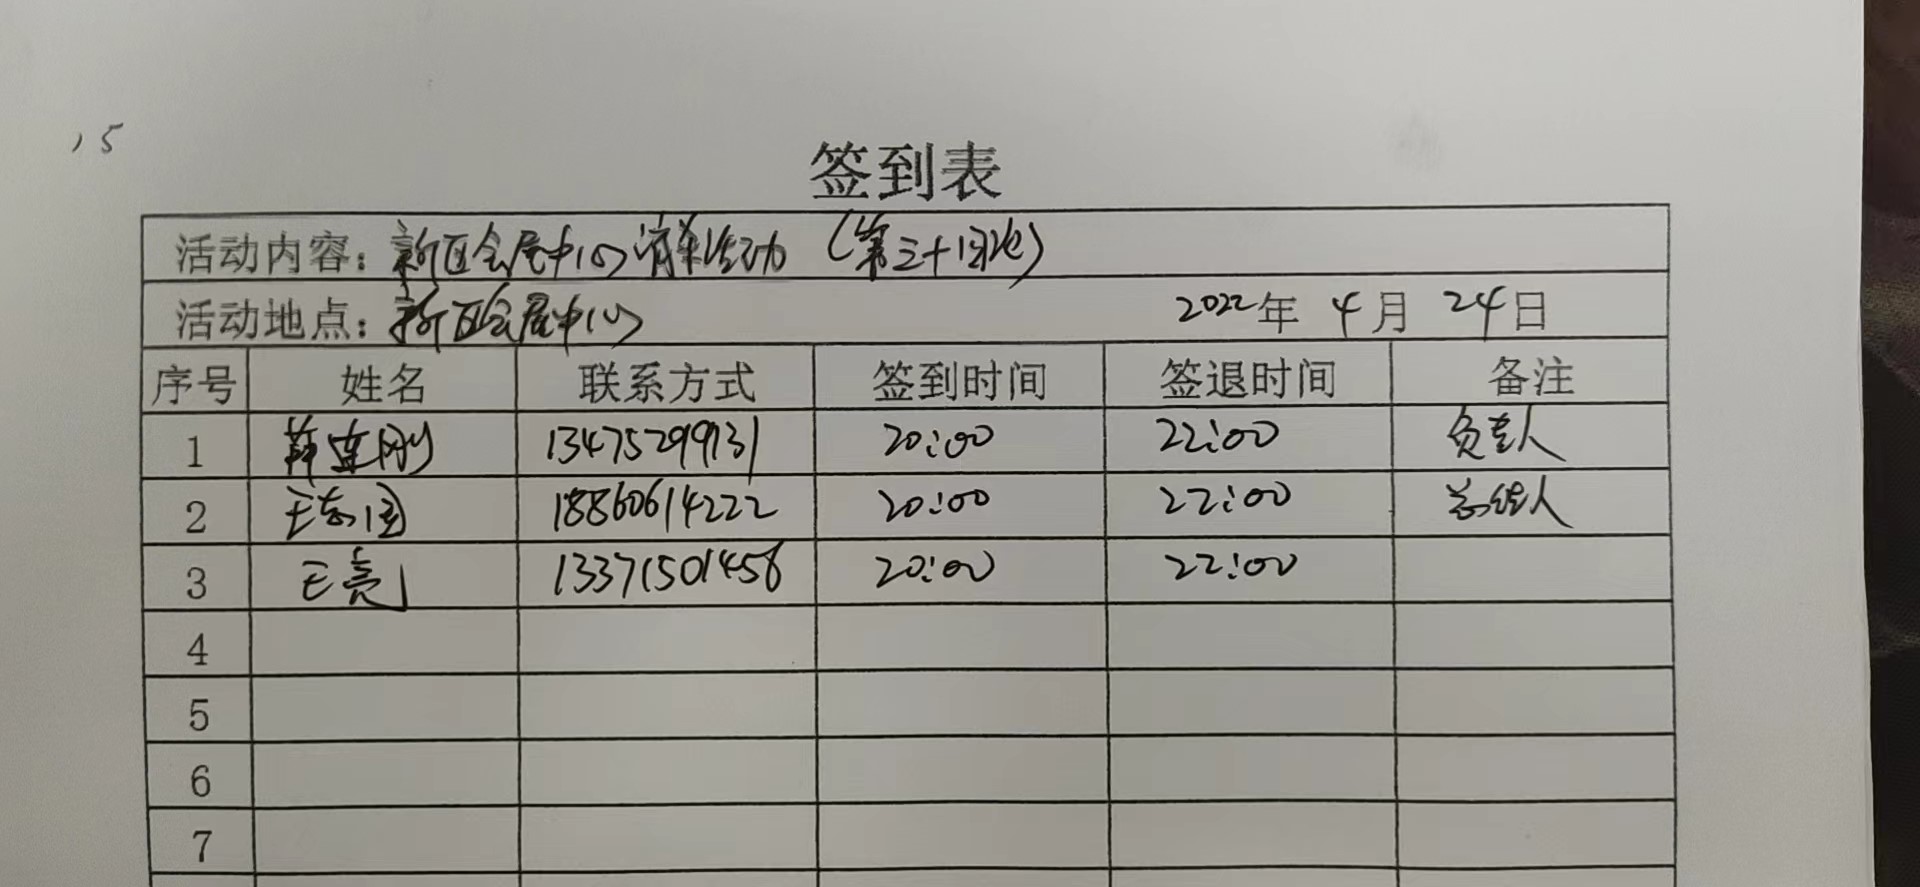 15
签到表
活动内容：新区会展中心消杀活动（第三十次）
活动地点：新区会展中心 2022年 4月 24日
序号 姓名 联系方式 签到时间 签退时间 备注
1 薛连刚 13475299131 20:00 22:00 负责人
2 王志国 18860614222 20:00 22:00
3 王亮 13371501456 20:00 22:00
4
5
6
7